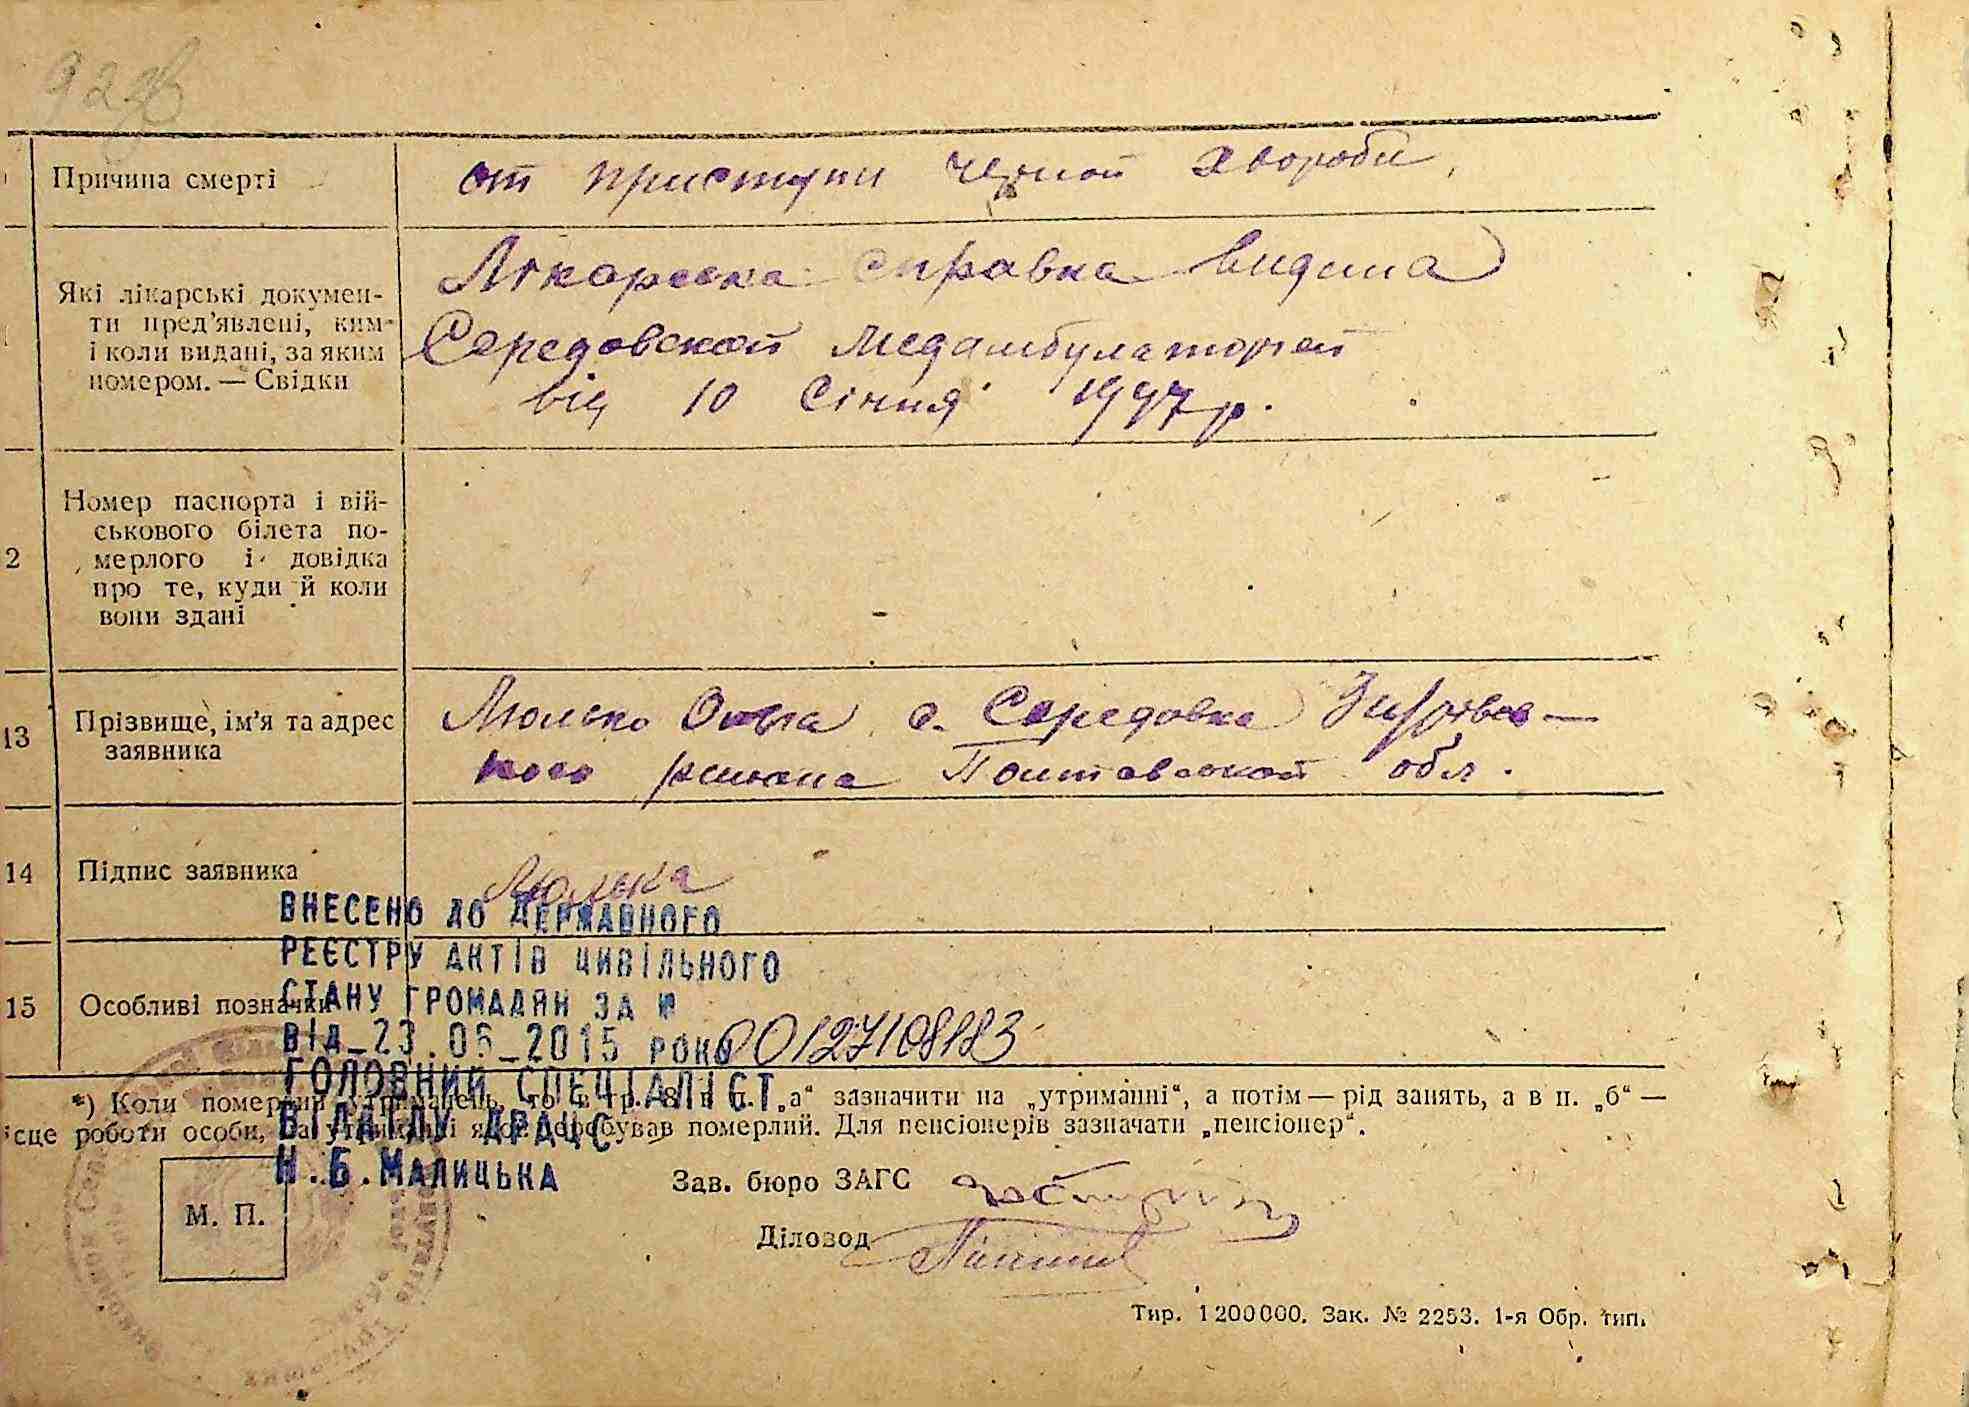 922
Причина смерті
от приступи черной хвороби,
Які лікарські докумен-
ти пред’явлені, ким
і коли видані, за яким
номером. — Свідки
Лікарска справка видана
Середовской медамбулаторей
від 10 Січня 1947 р.
2
Номер паспорта і вій-
ськового білета по-
мерлого і довідка
про те, куди й коли
вони здані
13
Прізвище, ім’я та адрес
заявника
Люлько Ольга с. Середовка
кого района Полтавской обл.
14
Підпис заявника
Люлька
ВНЕСЕНО ДО ДЕРЖАВНОГО
РЕЄСТРУ АКТІВ ЦИВІЛЬНОГО
15
Особливі позначки
СТАНУ ГРОМАДЯН ЗА №
ВІД_23.06_2015 РОКУ 00127108183
ГОЛОВНИЙ СПЕЦІАЛІСТ
*) Коли померлий утриманець, то в гр. 8 в п. „а“ зазначити на „утриманні“, а потім — рід занять, а в п. „б“ —
ВІДДІЛУ ДРАЦС
ісце роботи особи, на утриманні якої перебував померлий. Для пенсіонерів зазначати „пенсіонер“.
Н.Б.МАЛИЦЬКА
Зав. бюро ЗАГС
М. П.
Діловод
Тир. 1200000. Зак. № 2253. 1-я Обр. тип.